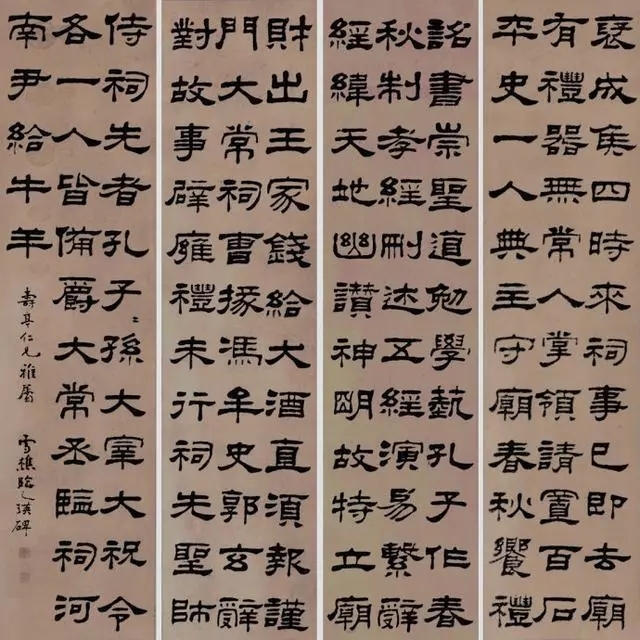 襃成矦四時來祠事已即去廟
有禮器無常人掌領請置百石
卒史一人典主守廟春秋饗禮
詔書崇聖道勉學藝孔子作春
秋制孝經刪述五經演易繫辭
經緯天地幽讚神明故特立廟
財出王家錢給大酒直須報謹
門大常祠曹掾馮牟史郭玄辭
對故事辟廱禮未行祠先聖師
侍祠先者孔子〻孫大宰大祝令
各一人皆備爵大常丞臨祠河
南尹給牛羊
壽仁兄雅屬
雪樵臨乙瑛碑